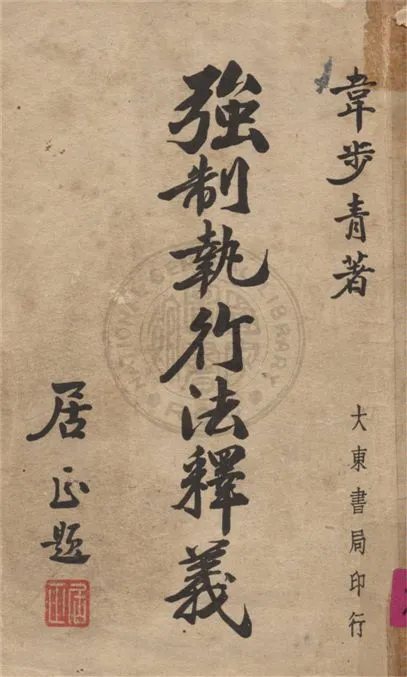 韋步青著
大東書局印行
強制執行法釋義
居正題
居正